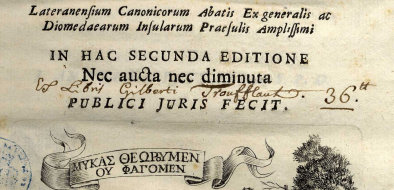 Lateranensium Canonicorum Abatis Ex generalis ac
Diomedaearum Insularum Praesulis Amplissimi
IN HAC SECUNDA EDITIONE
Nec aucta nec diminuta
Ex Libris Gilberti Troufflaut. 36.tt
PUBLICI JURIS FECIT.
ΜΥΚΑΣ ΘΕΩΡΥΜΕΝ
ΟΥ ΦΑΓΟΜΕΝ